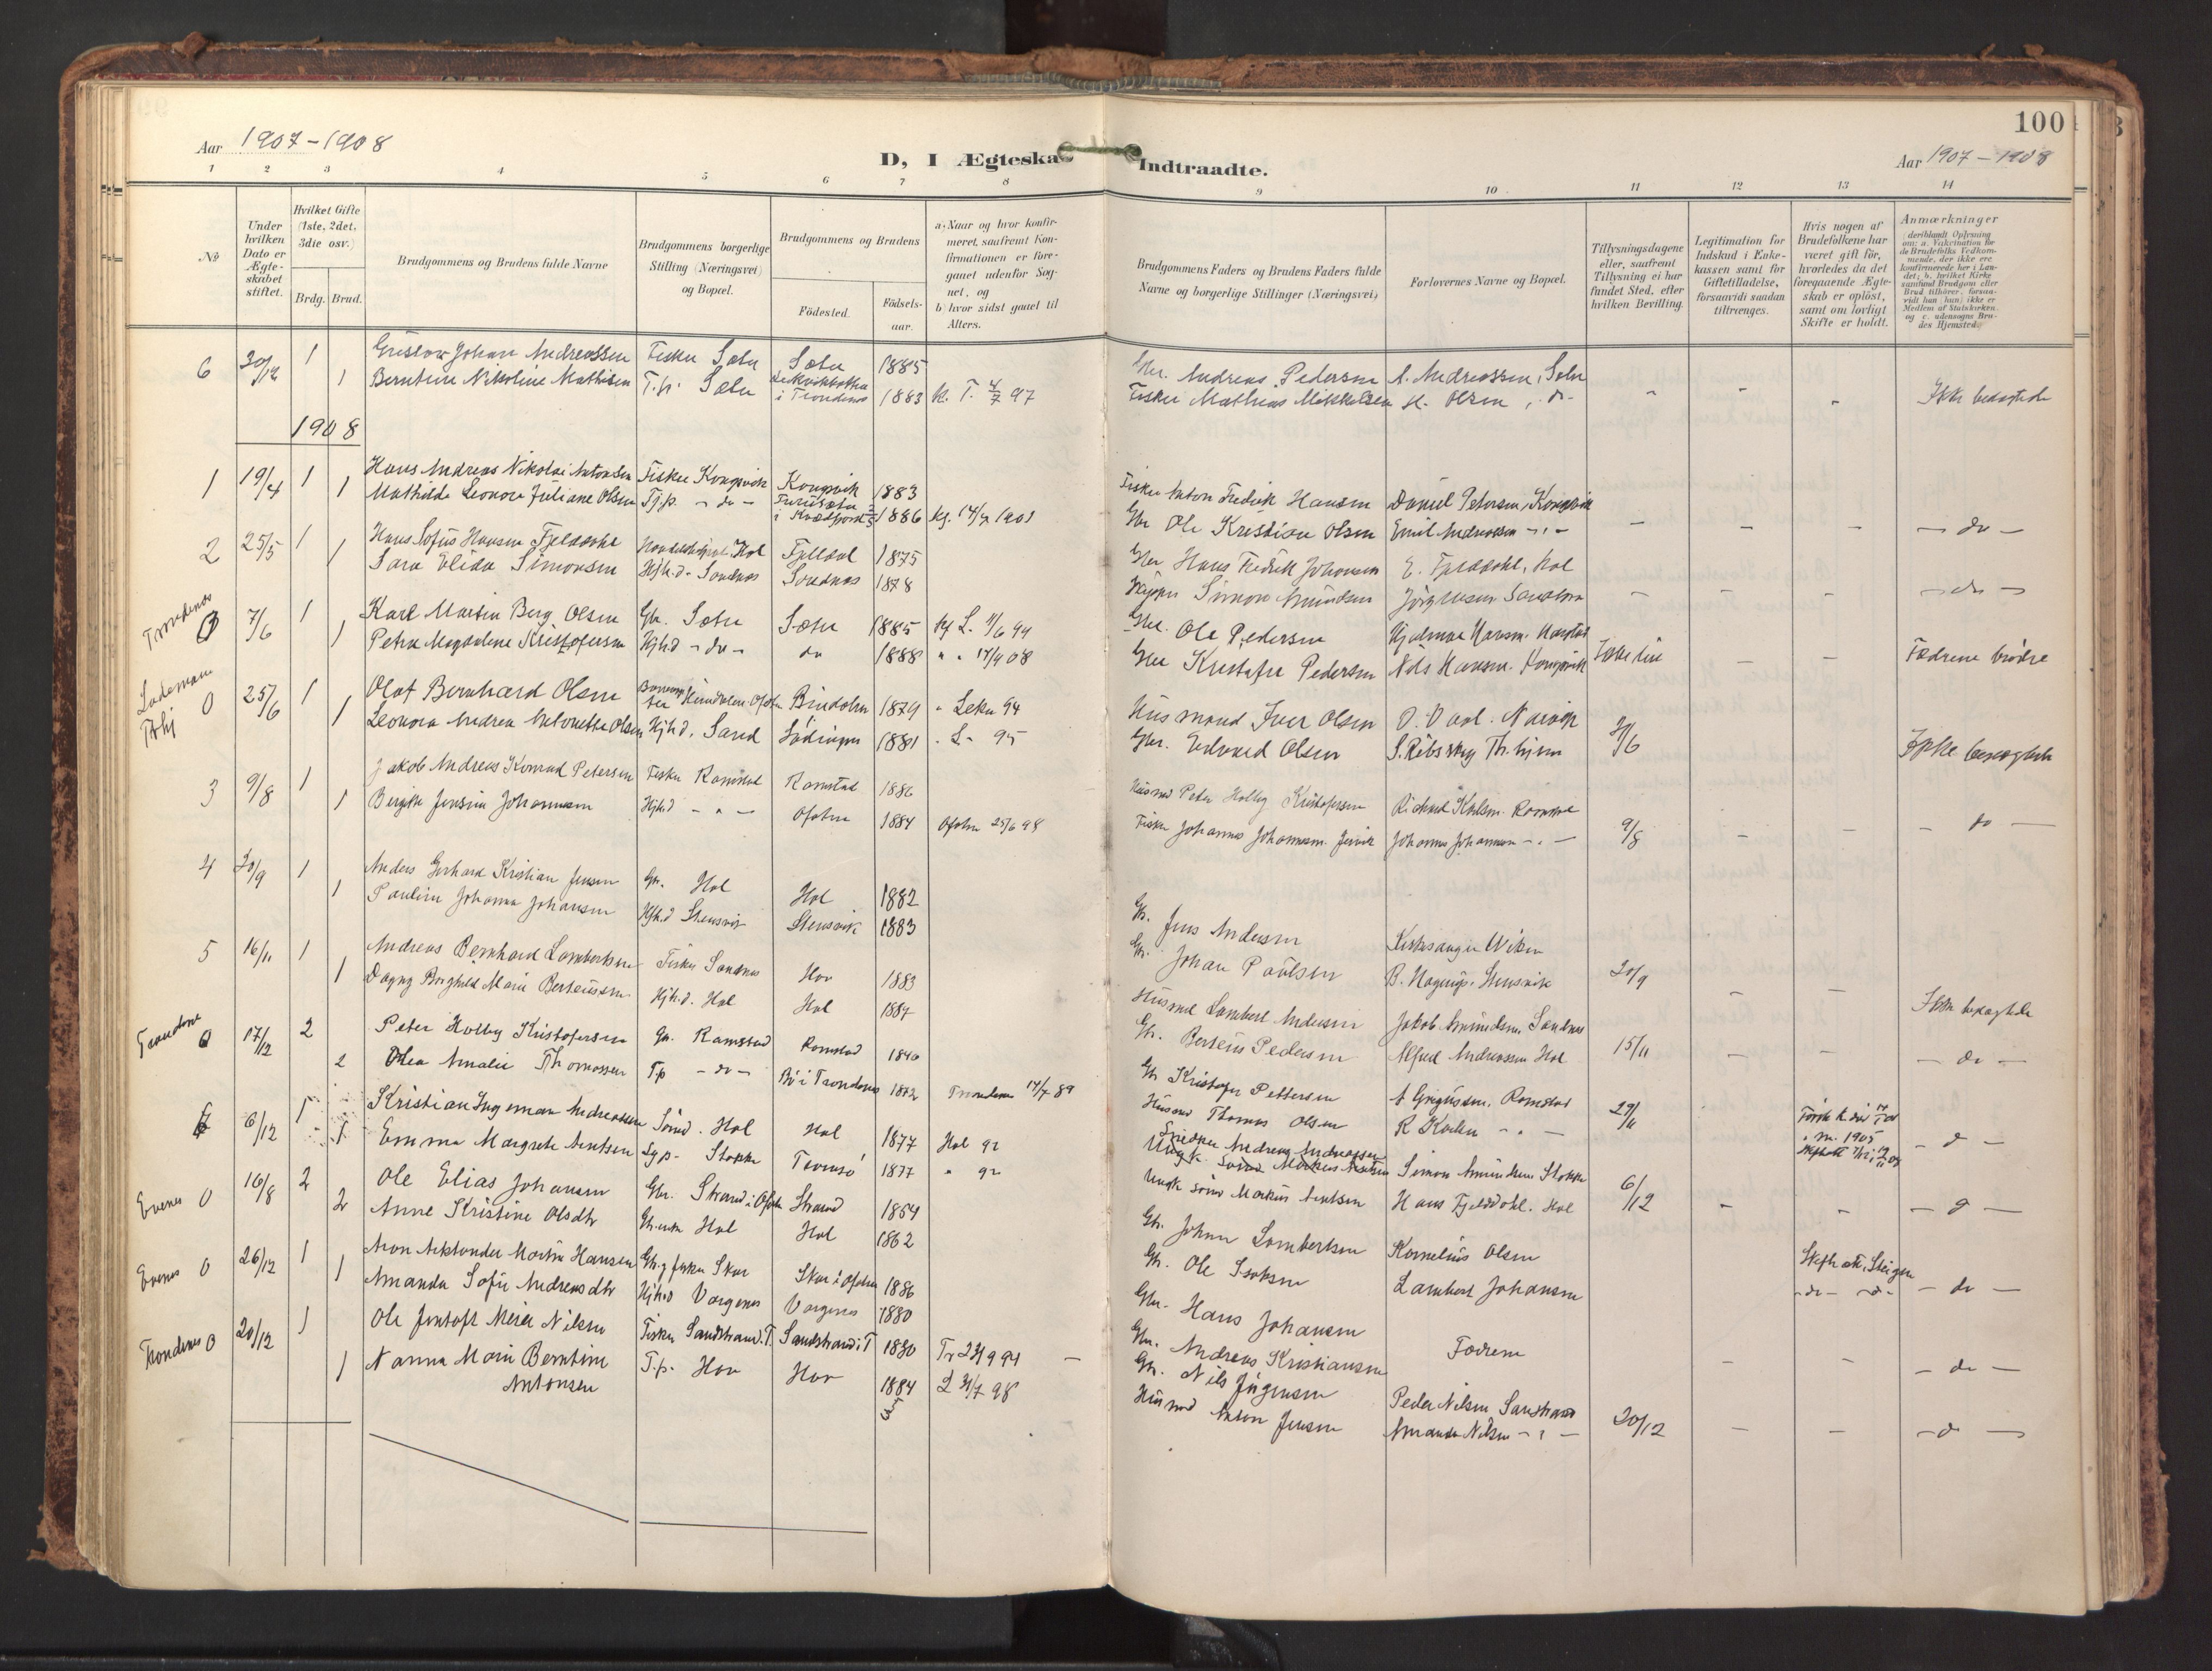 100
Aar 1907-1908
D, I Ægteska
Indtraadte.
Aar 1907-1908
1 2 3 4 5 6 7 8
9 10 11 12 13 14
No
Under hvilken Dato er Ægteskabet stiftet.
Hvilket Gifte (1ste, 2det, 3die osv.)
Brdg. Brud.
Brudgommens og Brudens fulde Navne
Brudgommens borgerlige Stilling (Næringsvei) og Bopæl.
Brudgommens og Brudens
Födested.
Födselsaar.
a) Naar og hvor konfirmeret, saafremt Konfirmationen er foregaaet udenfor Sognet, og
b) hvor sidst gaaet til Alters.
Brudgommens Faders og Brudens Faders fulde Navne og borgerlige Stillinger (Næringsvei)
Forlovernes Navne og Bopæl.
Tillysningsdagene eller, saafremt Tillysning ei har fundet Sted, efter hvilken Bevilling.
Legitimation for Indskud i Enkekassen samt for Giftetilladelse, forsaavidt saadan tiltrænges.
Hvis nogen af Brudefolkene har været gift för, hvorledes da det foregaaende Ægteskab er oplöst, samt om lovligt Skifte er holdt.
Anmærkninger
(deriblandt Oplysning om: a. Vakcination for de Brudefolks Vedkommende, der ikke ere konfirmerede her i Landet; b. hvilket Kirkesamfund Brudgom eller Brud tilhörer, forsaavidt han (hun) ikke er Medlem af Statskirken, og c. udensogns Brudes Hjemsted.
6 30/12 1 Gustav Johan Andreassen Fisker Sæter Sæter 1885
1 Berntine Nikoline Mathisen T.p. Sæter i Trondenes 1883 K. T. 4/7 97
Gbr. Andreas Pedersen A. Andreassen, Sæter
Fisker Mathias Mikkelsen H. Olsen, do - - - Ikke beslægtede
1908
1 19/4 1 Hans Andreas Nikolai Antonsen Fisker Kongsvik Kongsvik 1883
1 Mathilde Leonore Juliane Olsen Tj.p. - do - i Kvædfjord 1886 Kf. 14/7 1901
Fisker Anton Fredrik Hansen Daniel Petersen, Kongsvik
Gbr Ole Kristian Olsen Emil Andreassen - " - - - - - do -
2 25/5 1 Hans Sofus Hansen Fjelddahl Hol Fjelldal 1875
1 Sara Elida Simonsen Hjh.d. Sandnes Sandnes 1878
Gbr Hans Fredrik Johansen E. Fjelddahl, Hol
Simon Amundsen - - - - do -
Trondenes 0 7/6 1 Karl Martin Berg Olsen Gbr. Sæter Sæter 1885 Kf L. 11/6 99
1 Petra Magdalene Kristofersen Hjh.d - do - do 1888 " " 14/9 08
Gbr. Ole Pedersen Hjalmar Hansen. Harstad
Gbr Kristofer Pedersen Nils Hansen. Kongsvik - - Fædrene brödre
Lademoen Thj 0 25/6 1 Olaf Bernhard Olsen Bindalen 1879 " Leka 94
1 Leonora Andrea Antonette Olsen Hjh.d. Sand Lödingen 1881 . L - 95
Husmand Iver Olsen O. Dahl. Narvik
Gbr. Edvard Olsen Th.hjem Ikke beslægtede
3 9/8 1 Jakob Andreas Konrad Petersen Fisker Ramstad Ramstad 1886
1 Bergitte Jensine Johannesen Hjh.d - " - Ofoten 1884 Ofoten 25/6 98
Husmd Peter Holby Kristofersen Rikard Karlsen. Ramstad
Fisker Johannes Johannesen. Johannes Johannesen - " - 9/8 - - - do -
4 20/9 1 Anders Gerhard Kristian Jensen Gbr. Hol Hol 1882
1 Pauline Johanna Johansen Hjh.d Stensvik Stensvik 1883
Gbr. Jens Andersen Kirkesanger Wiken
Gbr. Johan Paulsen B. Stensvik 20/9 - - Ikke beslægtede
5 16/11 1 Andreas Bernhard Lambertsen Fisker Sandnes Hov 1883
1 Dagny Borghild Marie Berteussen Hjh.d. Hol Hol 1887
Husmd Lambert Andersen Jakob Amundsen, Sandnes
Gbr. Berteus Pedersen Alfred Andreassen Hol 15/11 - - - do -
Trondenes 0 17/12 2 Peter Holby Kristofersen Gbr. Ramstad Ramstad 1840
2 Olea Amalie Thomassen Tp - do - Bö i Trondenes 1872 Trondenes 14/7 89
Gbr Kristofer Pettersen A Gregussen. Ramstad
Husmd Thomas Olsen R Karlsen - " - 29/11
6 6/12 1 Kristian Ingeman Andreassen Sömd. Hol Hol 1877 Hol 92
1 Emma Margrete Arntsen Stokke Tromsö 1877 " 92
Snedker Andreas Andreassen Simon Amundsen Stokke
Ungk. sömd Markus Arntsen Hans Fjelddahl. Hol 6/12 - - - do -
Evenes 0 16/8 2 Ole Elias Johansen Gbr. Strand i Ofoten Strand 1854
2 Anne Kristine Olsdtr Gbr.enke Hol Hol 1862
Gbr. Johan Lambertsen Kornelius Olsen
Gbr. Ole Isaksen Lambert Johansen - do - - do - - do -
Evenes 0 26/12 1 Aron Aleksander Martin Hansen Gbr. g fisker Skar Skar i Ofoten 1886
1 Amanda Sofie Andreasdtr Hjh.d Vargenes Vargenes 1880
Gbr. Hans Johansen
Gbr. Andreas Kristiansen Fædrene - - - do -
Trondenes 0 20/12 1 Ole Jentoft Meier Nilsen Fisker Sandstrand i T. Sandstrand i T 1880 Tr 23/9 94 -
1 Nanna Marie Berntine Antonsen T.p. Hov Hov 1884 L 31/7 98
Gbr. Nils Jörgensen Peder Nilsen Sandstrand
Husmd Anton Jensen Amanda Nilsen - " - 20/12 - - - do -